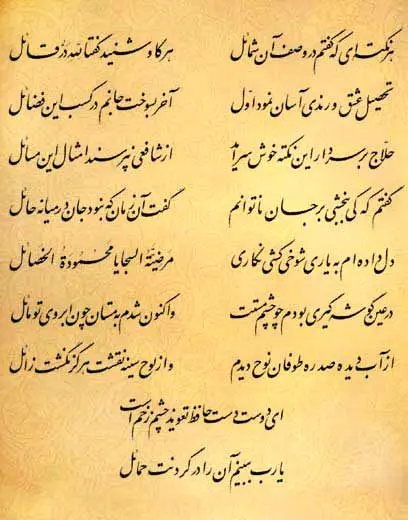 هر نکته‌ای که گفتم در وصف آن شمائل هر کاو شنید گفتا لله در قائل
تحصیل عشق و رندی آسان نمود اول آخر بسوخت جانم در کسب این فضائل
حلاج بر سر دار این نکته خوش سراید از شافعی نپرسند امثال این مسائل
گفتم که کی ببخشی بر جان ناتوانم گفت آن زمان که نبود جان در میانه حائل
دل داده‌ام به یاری شوخی کشی نگاری مرضیّة السجایا محمودة الخصائل
در عین گوشه‌گیری بودم چو چشم مستت واکنون شدم به مستان چون ابروی تو مائل
از آب دیده صد ره طوفان نوح دیدم وز لوح سینه نقشت هرگز نگشت زائل
ای دوست دست حافظ تعویذ چشم زخم است
یا رب ببینم آن را در گردنت حمائل